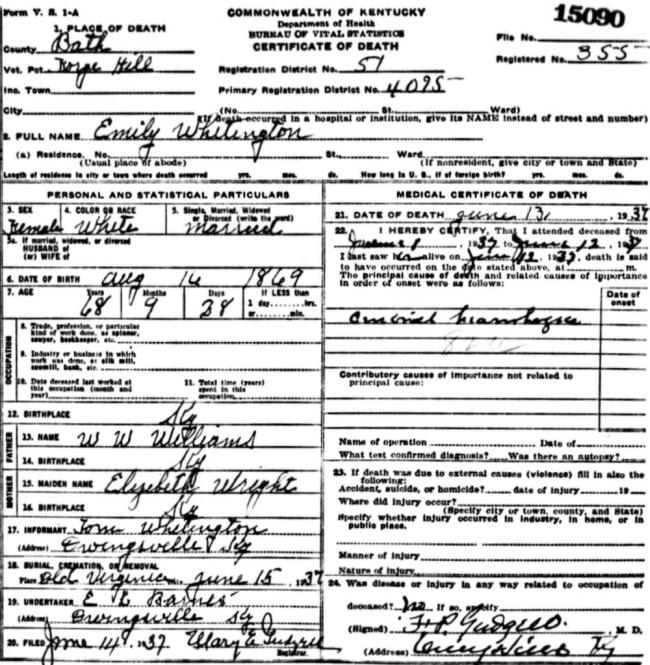 Form V. S. 1-A
COMMONWEALTH OF KENTUCKY
15090
Department of Health
BUREAU OF VITAL STATISTICS
CERTIFICATE OF DEATH
File No.
Registered No. 355
1. PLACE OF DEATH
County Bath
Vot. Pct. Hill
Registration District No. 51
Inc. Town
Primary Registration District No. 4095
City (No. St. Ward)
(If death occurred in a hospital or institution, give its NAME instead of street and number)
2. FULL NAME Emily Whitington
(a) Residence. No. St., Ward.
(Usual place of abode) (If nonresident, give city or town and State)
Length of residence in city or town where death occurred yrs. mos. ds. How long in U. S., if of foreign birth? yrs. mos. ds.
PERSONAL AND STATISTICAL PARTICULARS
3. SEX 4. COLOR OR RACE 5. Single, Married, Widowed
or Divorced (write the word)
Female White married
5a. If married, widowed, or divorced
HUSBAND of
(or) WIFE of
6. DATE OF BIRTH Aug 16 1869
7. AGE Years Months Days If LESS than
1 day,....hrs.
or....min.
68 9 28
OCCUPATION
8. Trade, profession, or particular
kind of work done, as spinner,
sawyer, bookkeeper, etc.
9. Industry or business in which
work was done, as silk mill,
sawmill, bank, etc.
10. Date deceased last worked at
this occupation (month and
year)
11. Total time (years)
spent in this
occupation
12. BIRTHPLACE Ky
FATHER
13. NAME W W Williams
14. BIRTHPLACE Ky
MOTHER
15. MAIDEN NAME Elizabeth Wright
16. BIRTHPLACE Ky
17. INFORMANT Tom Whitington
(Address) Owingsville Ky
18. BURIAL, CREMATION, OR REMOVAL
Place Old Virginia Date June 15 1937
19. UNDERTAKER E E Barnes
(Address) Owingsville Ky
20. FILED June 14 1937 Mary E
Registrar.
MEDICAL CERTIFICATE OF DEATH
21. DATE OF DEATH June 13, 1937
22. I HEREBY CERTIFY, That I attended deceased from
June 1 1937 to June 12 1937
I last saw alive on June 12 1937, death is said
to have occurred on the date stated above, at m.
The principal cause of death and related causes of importance
in order of onset were as follows:
Date of
onset
Contributory causes of importance not related to
principal cause:
Name of operation Date of
What test confirmed diagnosis? Was there an autopsy?
23. If death was due to external causes (violence) fill in also the
following:
Accident, suicide, or homicide? date of injury 19
Where did injury occur?
(Specify city or town, county, and State)
Specify whether injury occurred in industry, in home, or in
public place.
Manner of injury
Nature of injury
24. Was disease or injury in any way related to occupation of
deceased? no If so, specify
(Signed) M. D.
(Address) Ky